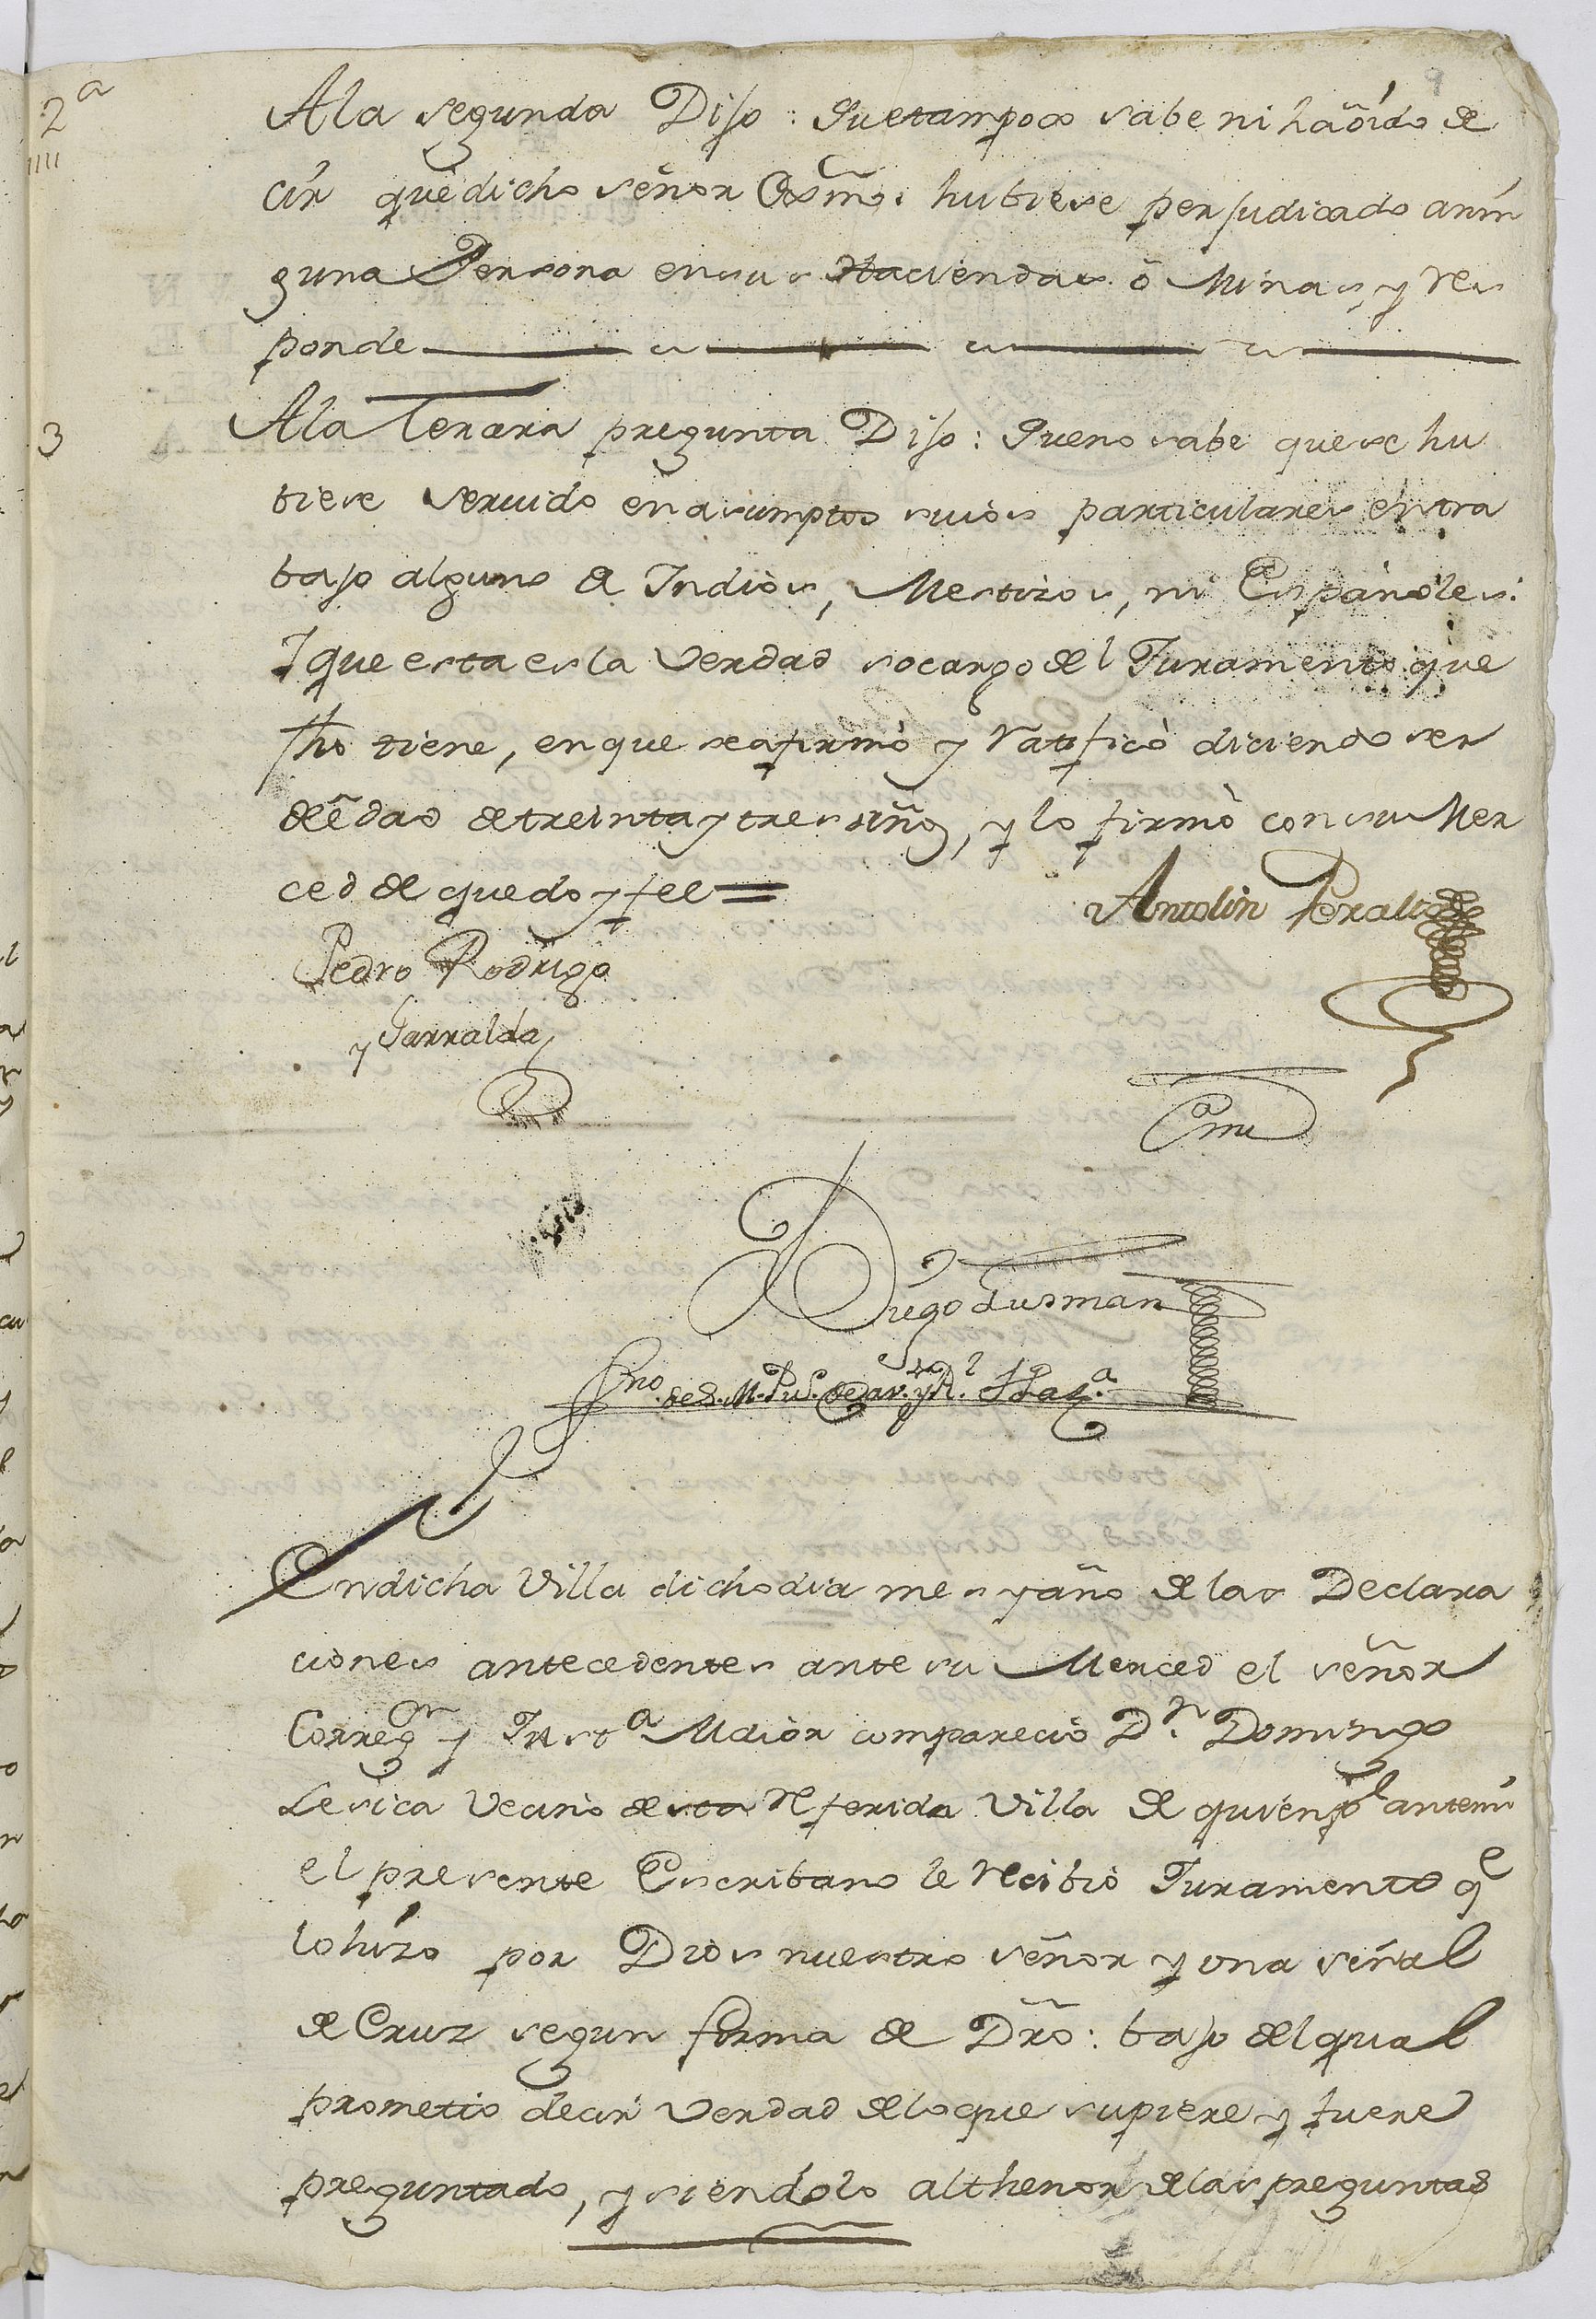 2ª
A la segunda Dijo: Que tampoco sabe ni hã oído de
cir que dicho señor Exmõ. hubiese perjudicado a nin
guna Persona en sus Haciendas ô Minas, y res
ponde
3
A la Tercera pregunta Dijo: Que no sabe que se hu
biese servido en asumptos suios particulares el tra
bajo alguno de Indios, Mestizos, ni Españoles:
Y que esta es la Verdad so cargo del Juramento que
fho tiene, en que se afirmò y ratificò diciendo ser
de êdad de treinta y tres años, y lo firmò con su Mer
ced de que doy fee =
Antolin Peralta
Pedro Rodrigo
y Garralda
Ante mi
Diego Gusman
Sno. de S. M. Pu.co de Cav. y Rl. Haz.a
En dicha Villa dicho dia mes y año de las Declara
ciones antecedentes ante su Merced el señor
Corregor y Justa Maior comparecio Dn. Domingo
Lesica Vecino de esta referida Villa de quien pr ante mi
el presente Escribano le recibiò Juramento qe
lo hizo por Dios nuestro señor y una señal
de Cruz segun forma de Dro: bajo del qual
prometio decir Verdad de lo que supiere y fuere
preguntado, y siendolo al thenor de las preguntas